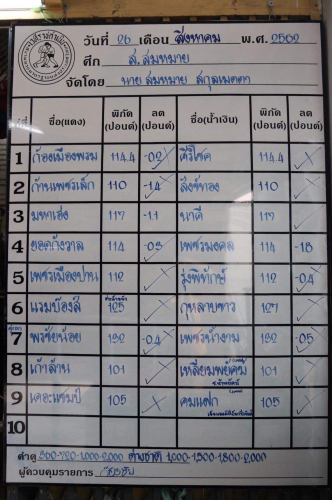 วันที่ 26 เดือน สิงหาคม พ.ศ. 2562
ศึก ส.สมหมาย
จัดโดย นาย สมหมาย สกุลเมตตา
คู่ที่ ชื่อ(แดง) พิกัด (ปอนด์) ลด (ปอนด์) ชื่อ(น้ำเงิน) พิกัด (ปอนด์) ลด (ปอนด์)
1 ก้องเมืองพรม 114.4 -0.2 ศิริโชค 114.4
2 ก้านเพชรเล็ก 110 -1.4 สังข์ทอง 110
3 มหาเฮง 117 -1.1 นาคี 117
4 ยอดกังวาล 114 -0.3 เพชรมงคล 114 -1.8
5 เพชรเมืองปาน 112 รุ่งพิทักษ์ 112 -0.4
6 แรมบ๊องส์ 125 กุหลาบขาว 127
7 พรชัยน้อย 132 -0.4 เพชรน้ำงาม 132 -0.5
8 เก้าล้าน 101 เหลี่ยมพยัคฆ์ 101
9 เดอะแชมป์ 105 คมแฝก 105
10
ค่าดู 500-720-1,000-2,000 ต่างชาติ 1,000-1,500-1,800-2,000
ผู้ควบคุมรายการ